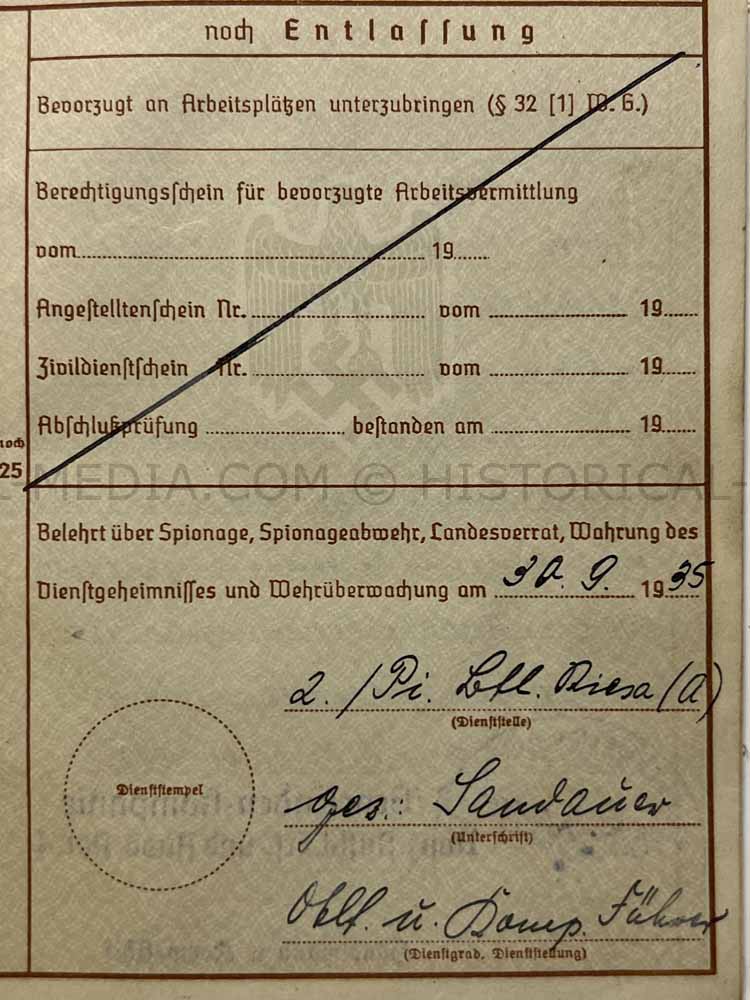 noch Entlassung
Bevorzugt an Arbeitsplätzen unterzubringen (§ 32 [1] W. G.)
Berechtigungsschein für bevorzugte Arbeitsvermittlung
vom 19
Angestelltenschein Nr. vom 19
Zivildienstschein Nr. vom 19
Abschlußprüfung bestanden am 19
noch
25
MEDIA.COM © HISTORICAL-
Belehrt über Spionage, Spionageabwehr, Landesverrat, Wahrung des
Dienstgeheimnisses und Wehrüberwachung am 30. 9. 1935
2. / Pi. Btl. Riesa (A)
(Dienststelle)
Dienststempel
gez.: Sandauer
(Unterschrift)
Oblt. u. Komp. Führer
(Dienstgrad, Dienststellung)